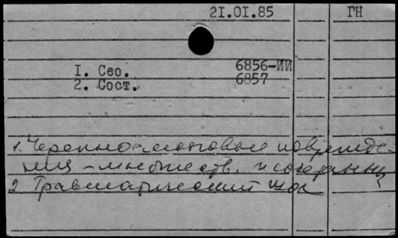 21.01.85 ГН
1. Сео. 6856-ИИ
2. Сост. 6857
1. Черепно-мозговые поврежде-
ния - множеств. и
2 Травматический шок